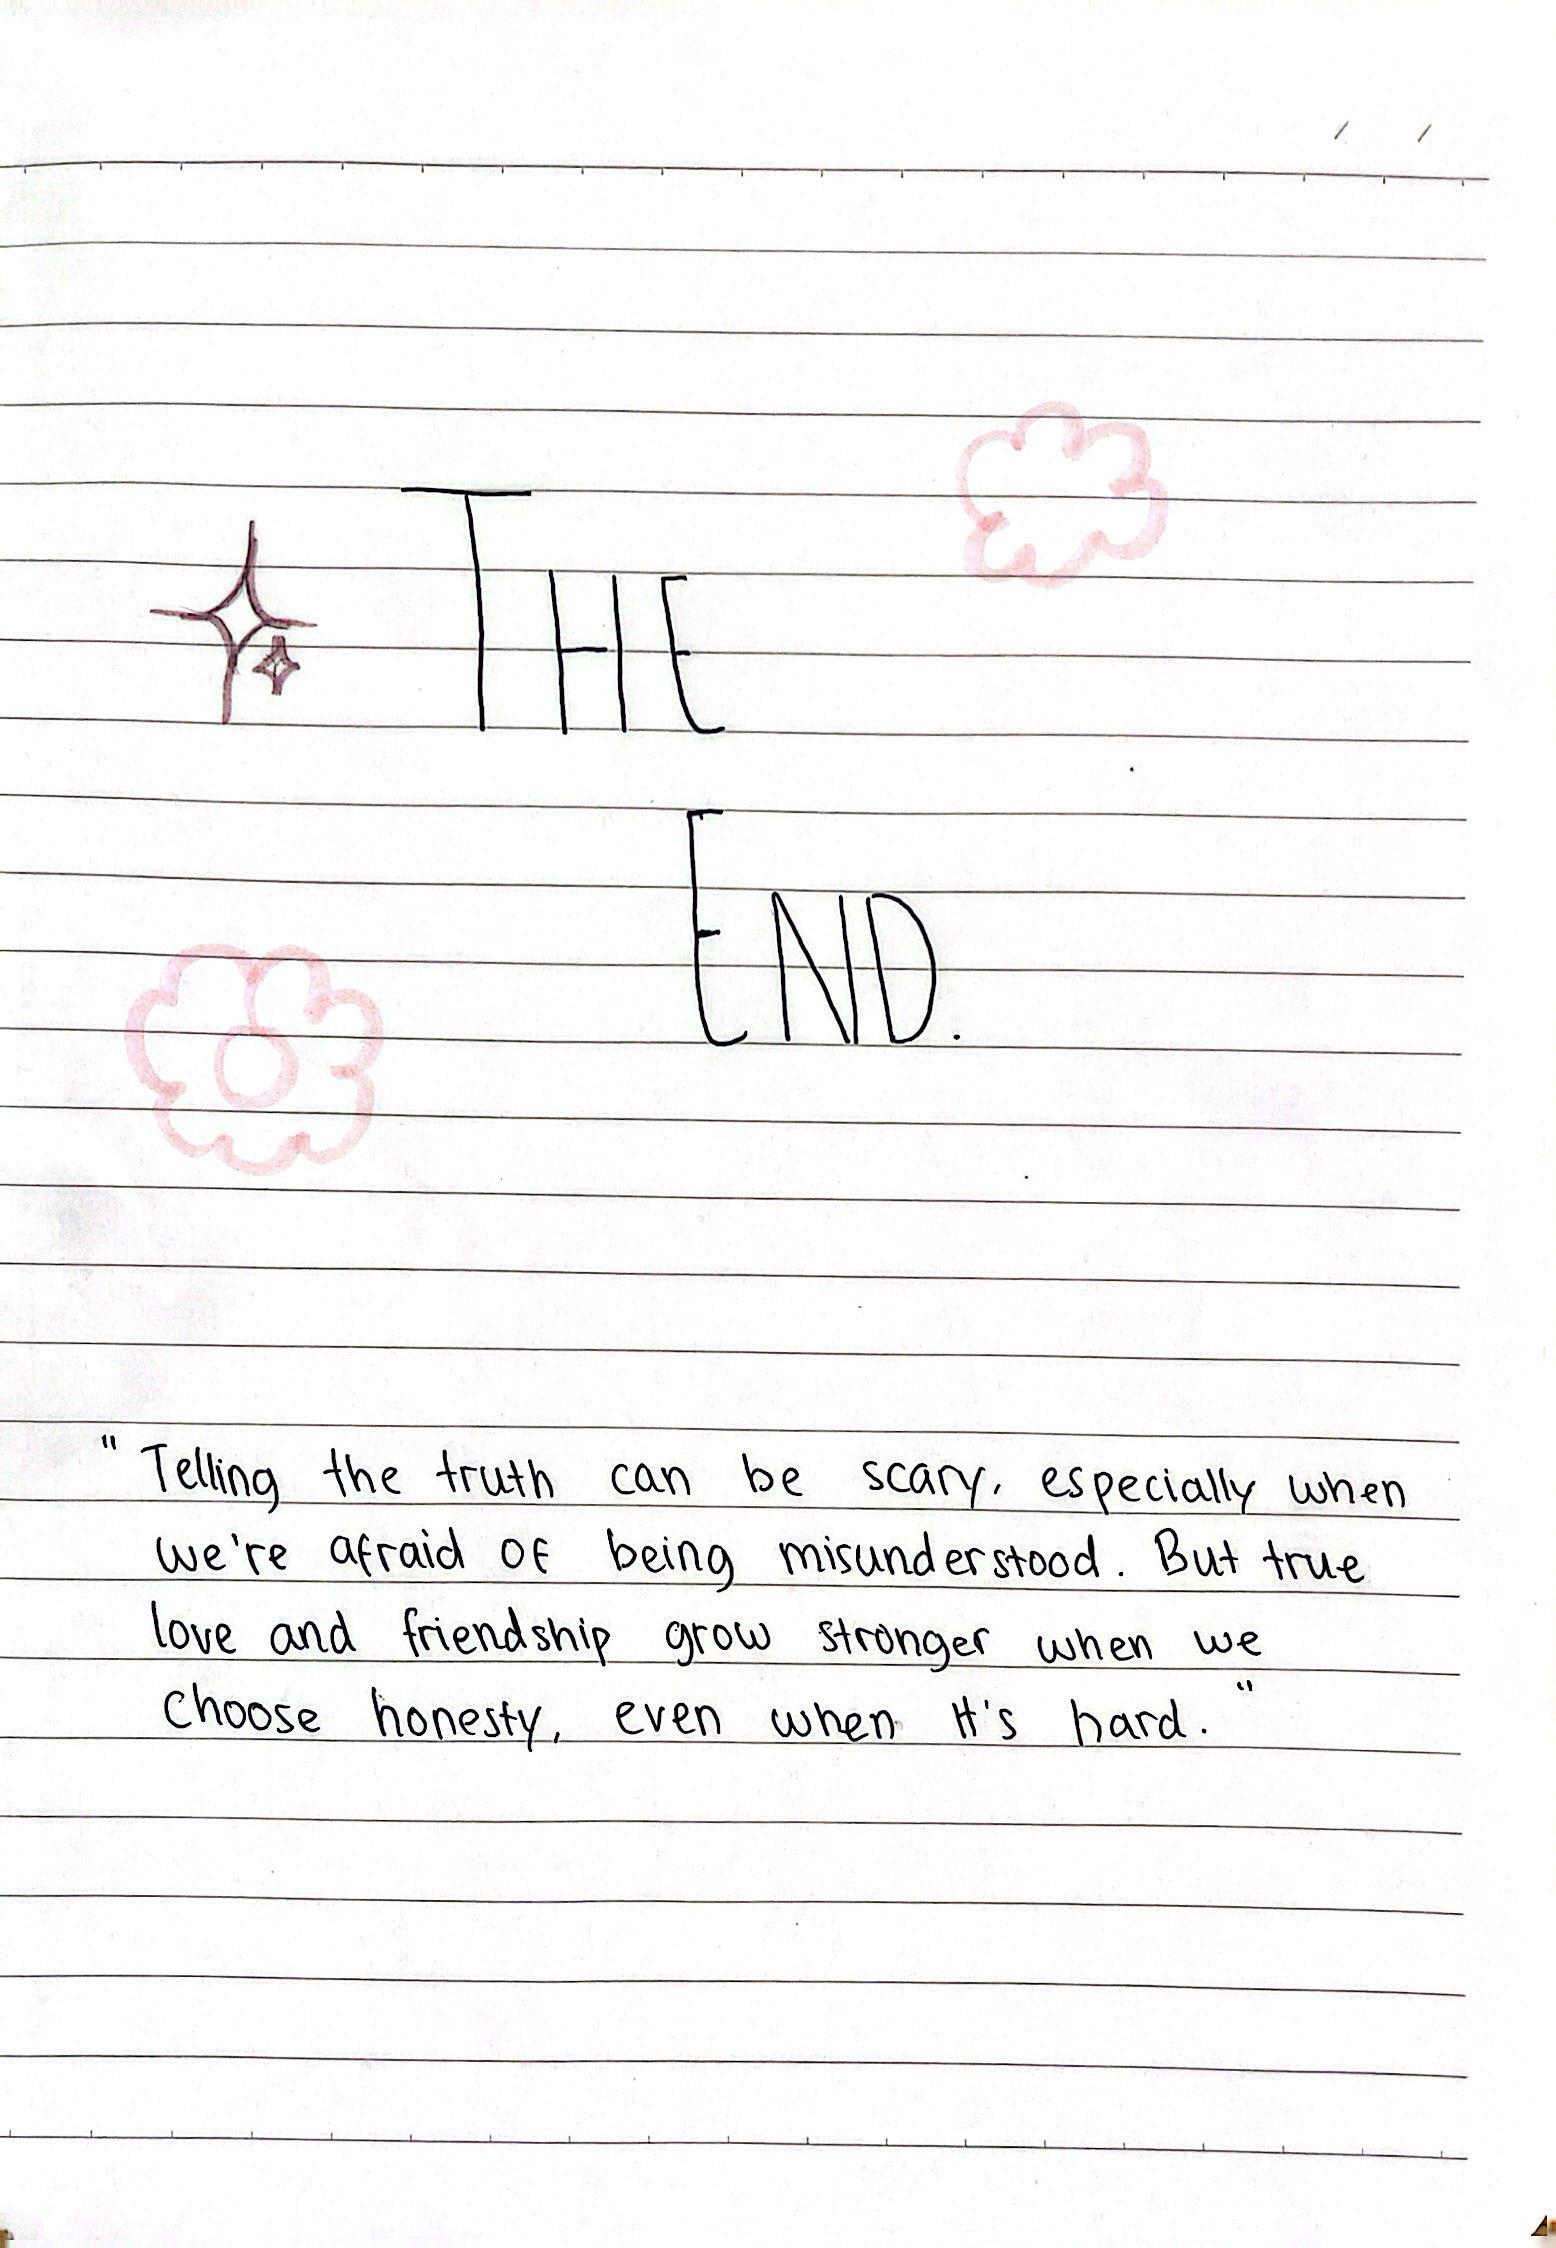 THE
END.
" Telling the truth can be scary, especially when
we're afraid of being misunderstood. But true
love and friendship grow stronger when we
choose honesty, even when it's hard. "